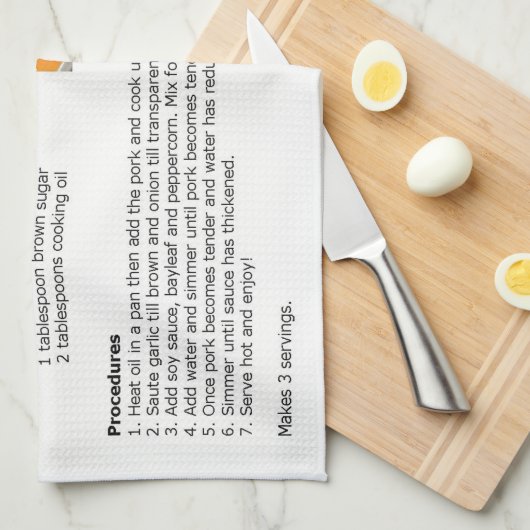 1 tablespoon brown sugar
2 tablespoons cooking oil
Procedures
1. Heat oil in a pan then add the pork and cook u
2. Saute garlic till brown and onion till transparen
3. Add soy sauce, bayleaf and peppercorn. Mix fo
4. Add water and simmer until pork becomes tend
5. Once pork becomes tender and water has redu
6. Simmer until sauce has thickened.
7. Serve hot and enjoy!
Makes 3 servings.